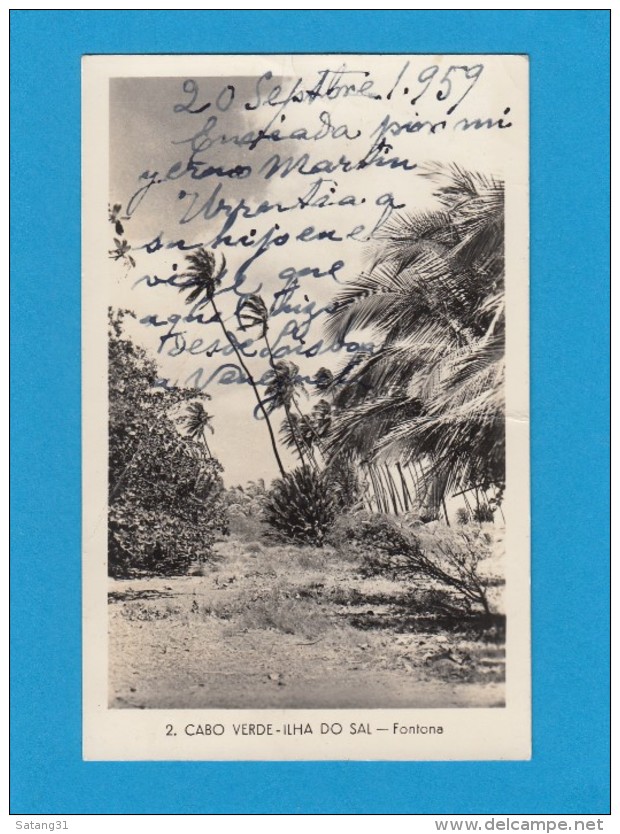 20 Septbre 1.959
Enviada por mi
yerno Martin
Urrestia. a
su hijo en el
viaje que
aquel hizo
desde Lisboa
a Venezuela
2. CABO VERDE - ILHA DO SAL — Fontona
Satang31
www.delcampe.net